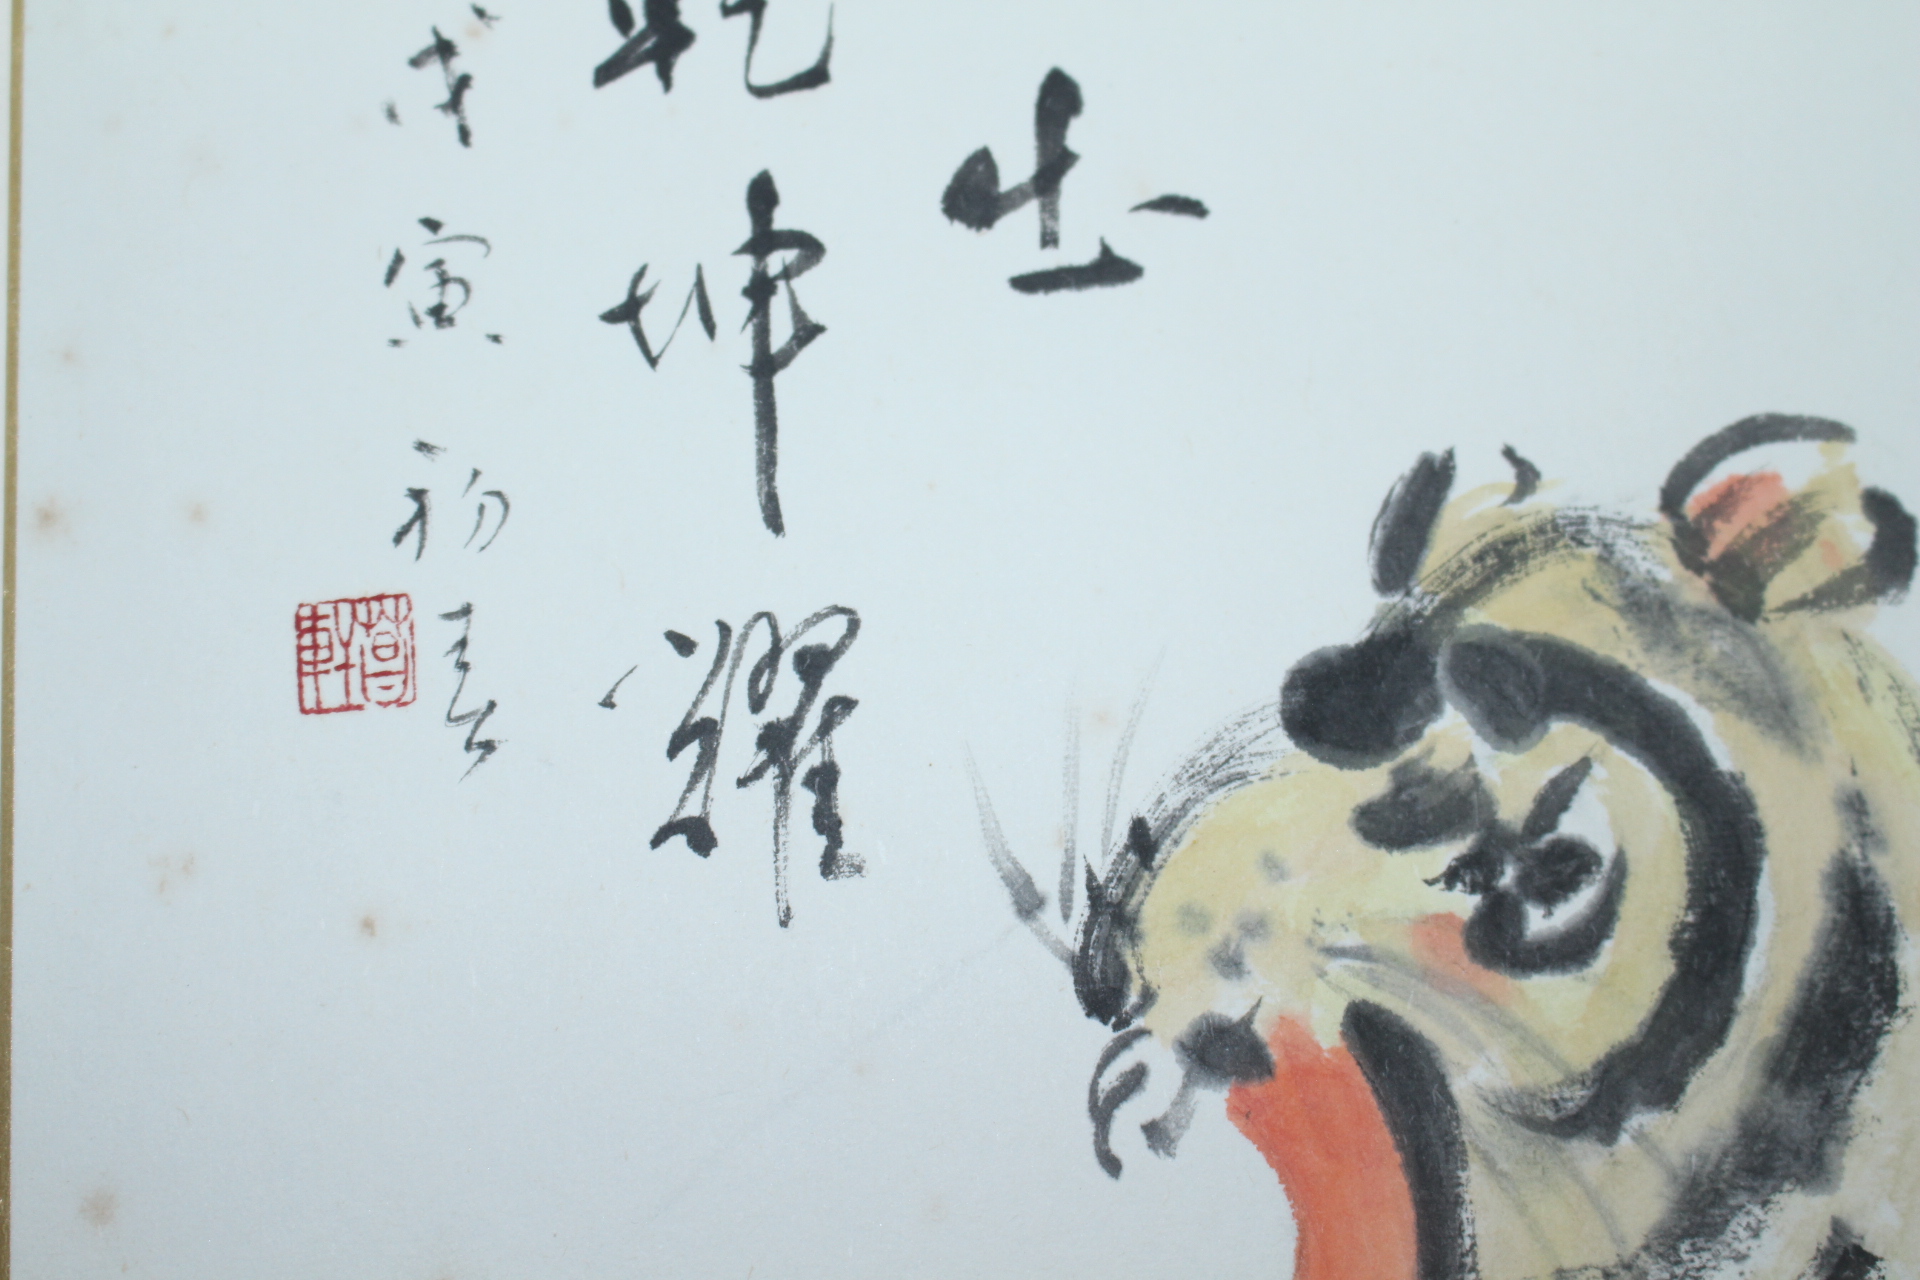 出
乾坤耀
戊寅初春